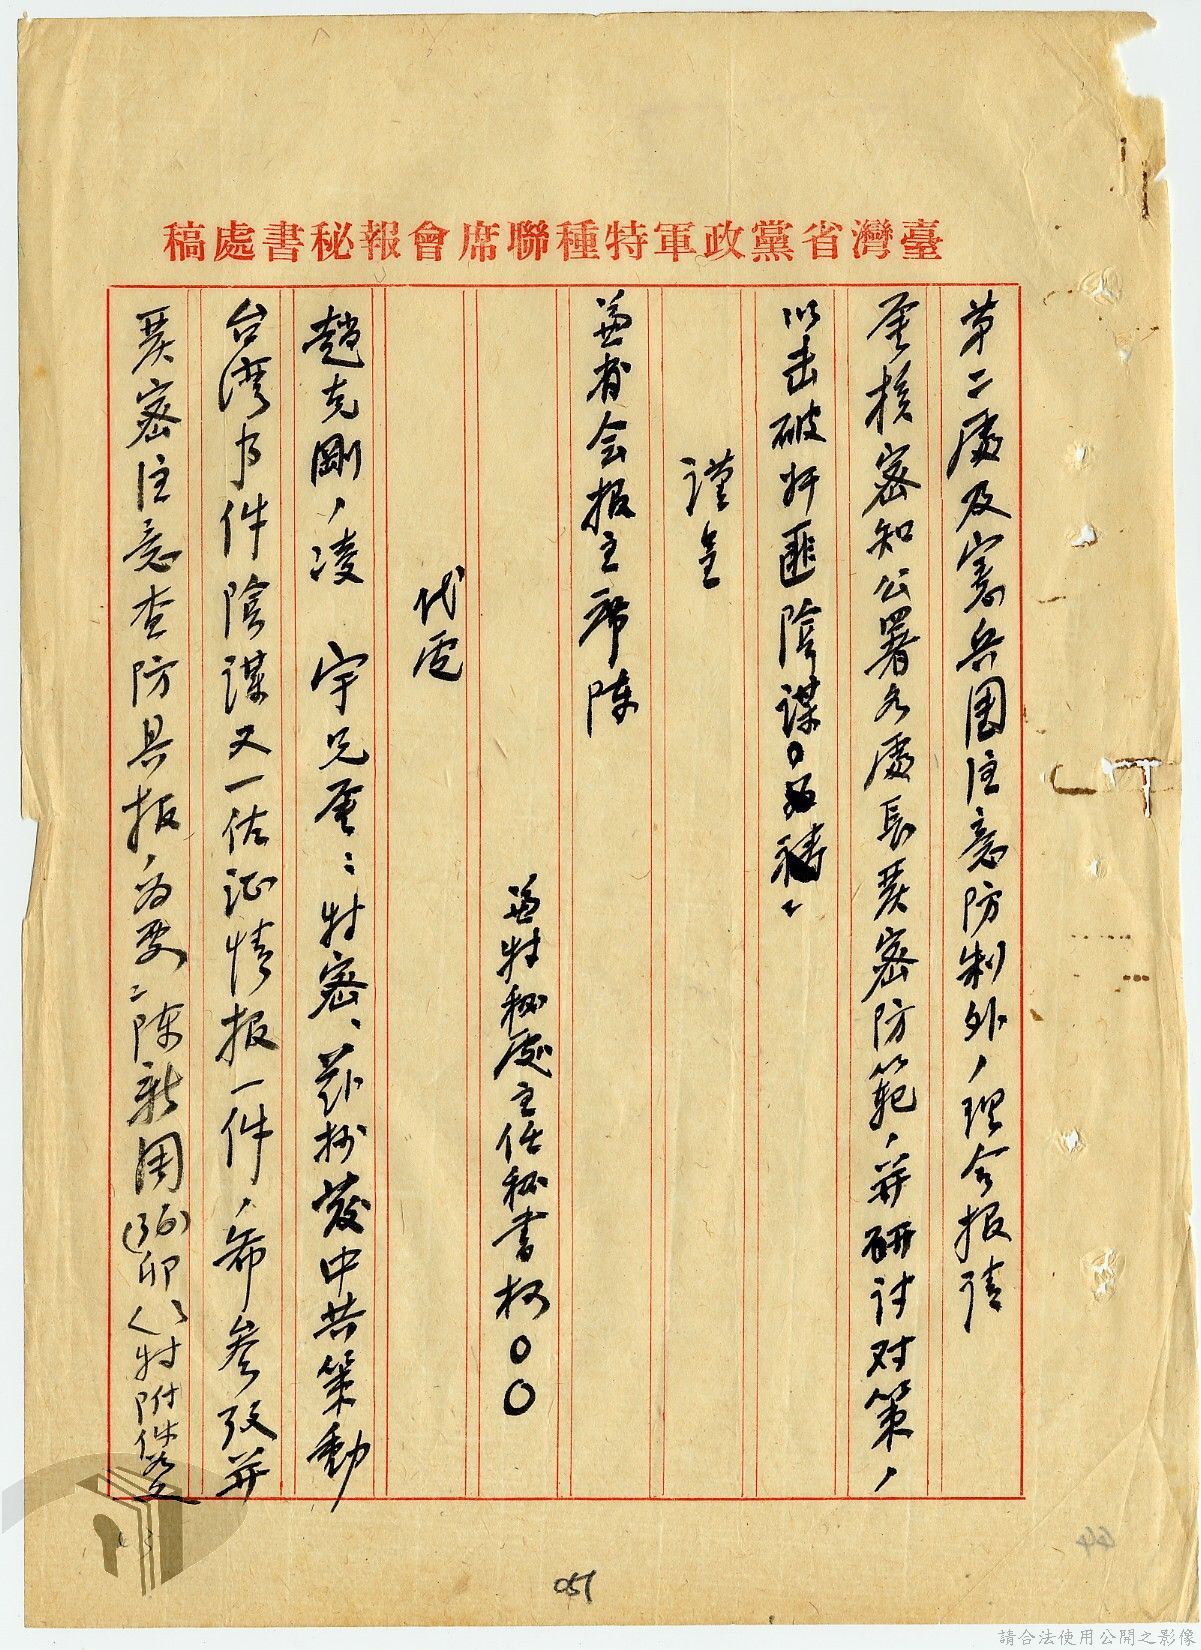 臺灣省黨政軍特種聯席會報秘書處稿
第二處及憲兵團注意防制外,理合报请
鉴核密知公署各處長严密防範,并研讨对策,
以击破奸匪陰谋。为祷.
謹呈
兼省会报主席陈
兼特秘處主任秘書柯〇〇
代电
趙克剛,凌 宇兄鉴:特密、兹抄发中共策動
台湾事件陰谋又一佐证情报一件,希参攷并
严密注意查防具报,为要.陈新周()卯()特附件如文
051
44
請合法使用公開之影像